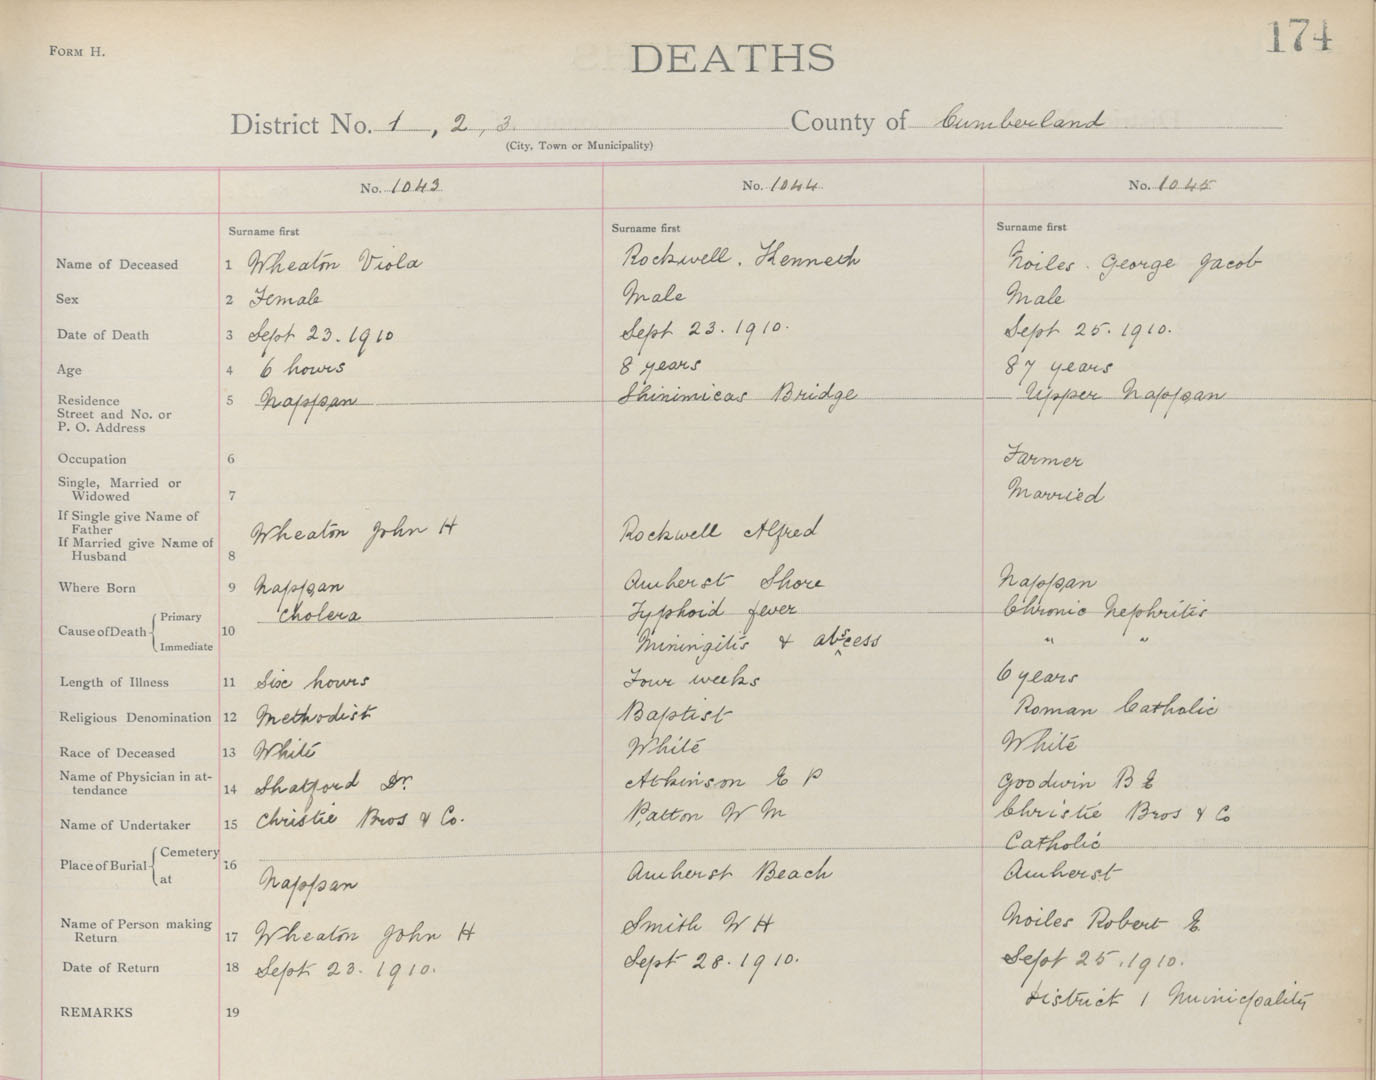 174
FORM H.
DEATHS
District No. 1, 2, 3. County of Cumberland
(City, Town or Municipality)
No. 1043 No. 1044 No. 1045
Surname first Surname first Surname first
Name of Deceased 1 Wheaton Viola Rockwell. Kenneth Noiles. George Jacob
Sex 2 Female Male Male
Date of Death 3 Sept 23. 1910 Sept 23. 1910. Sept 25. 1910.
Age 4 6 hours 8 years 87 years
Residence 5 Nappan Shinimicas Bridge Upper Nappan
Street and No. or
P. O. Address
Occupation 6 Farmer
Single, Married or
Widowed 7 Married
If Single give Name of
Father
If Married give Name of
Husband 8 Wheaton John H Rockwell Alfred
Where Born 9 Nappan Amherst Shore Nappan
Cause of Death 10 Primary Cholera Typhoid fever Chronic Nephritis
Immediate Miningitis & abscess " "
Length of Illness 11 Six hours Four weeks 6 years
Religious Denomination 12 Methodist Baptist Roman Catholic
Race of Deceased 13 White White White
Name of Physician in at-
tendance 14 Shatford Dr. Atkinson E P Goodwin B E
Name of Undertaker 15 Christie Bros & Co. Patton W M Christie Bros & Co
Place of Burial 16 Cemetery Catholic
at Nappan Amherst Beach Amherst
Name of Person making
Return 17 Wheaton John H Smith W H Noiles Robert E.
Date of Return 18 Sept 23. 1910. Sept 28. 1910. Sept 25. 1910.
REMARKS 19 District 1 Municipality